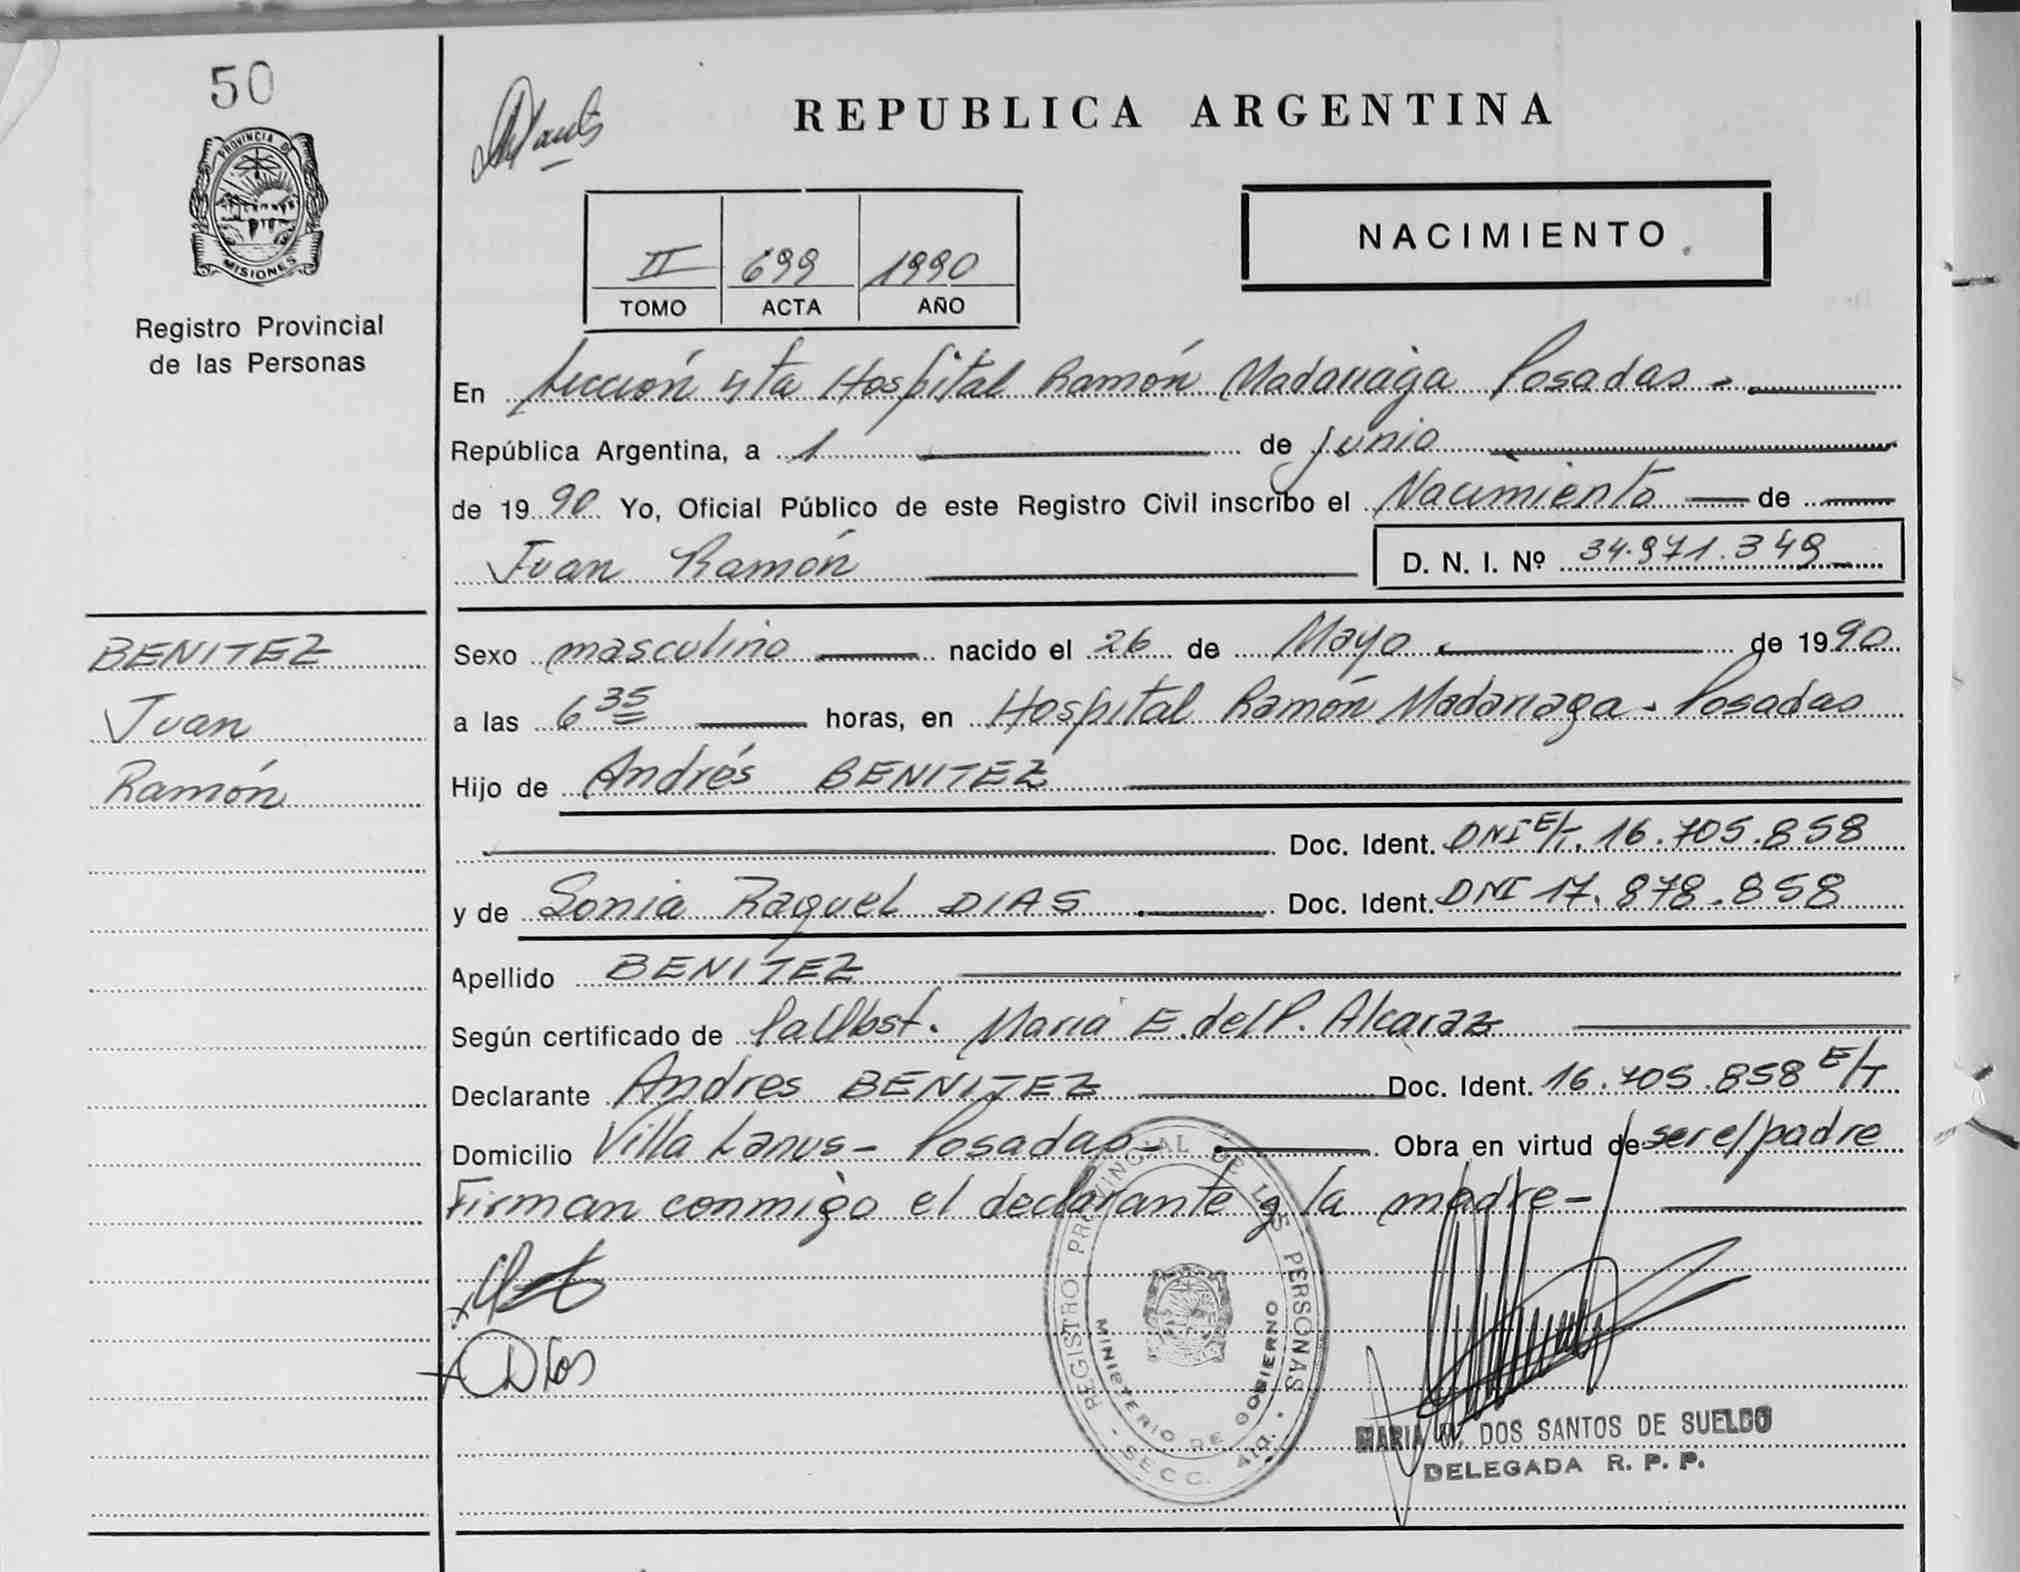 50
PROVINCIA DE
MISIONES
Registro Provincial
de las Personas
BENITEZ
Juan
Ramón
REPUBLICA ARGENTINA
II 699 1990
TOMO ACTA AÑO
NACIMIENTO
En Sección 4ta Hospital Ramón Madariaga Posadas -
República Argentina, a 1 de Junio
de 1990 Yo, Oficial Público de este Registro Civil inscribo el Nacimiento de
Juan Ramón D. N. I. Nº 34.971.349
Sexo masculino nacido el 26 de Mayo de 1990
a las 6 35 horas, en Hospital Ramón Madariaga - Posadas
Hijo de Andrés BENITEZ
Doc. Ident. DNI E/T. 16.705.858
y de Sonia Raquel DIAS Doc. Ident. DNI 17.878.858
Apellido BENITEZ
Según certificado de la Obst. María E. del P. Alcaraz
Declarante Andres BENITEZ Doc. Ident. 16.705.858 E/T
Domicilio Villa Lanus - Posadas - Obra en virtud de ser el padre
Firman conmigo el declarante y la madre -
REGISTRO PROVINCIAL DE LAS PERSONAS
MINISTERIO DE GOBIERNO
SECC. 4ta.
Dias
MARIA M. DOS SANTOS DE SUELDO
DELEGADA R. P. P.